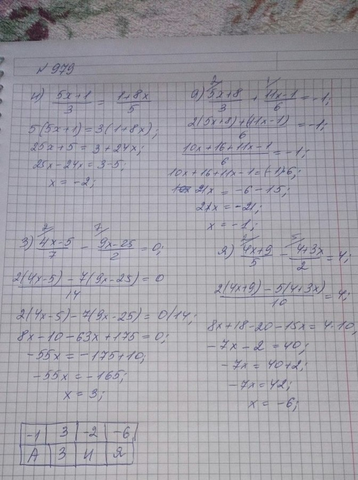 №979
и) 5x+1/3 = 1+8x/5
5(5x+1)=3(1+8x);
25x+5=3+24x;
25x-24x=3-5;
x=-2;
а) 5x+8/3 + 11x-1/6 = -1;
2(5x+8)+(11x-1)/6 = -1;
10x+16+11x-1/6 = -1;
10x+16+11x-1=(-1)·6;
21x = -6-15;
21x = -21;
x = -1;
з) 4x-5/7 - 9x-25/2 = 0;
2(4x-5)-7(9x-25)/14 = 0
2(4x-5)-7(9x-25)=0/14;
8x-10-63x+175=0;
-55x=-175+10;
-55x=-165;
x=3;
я) 4x+9/5 - 4+3x/2 = 4;
2(4x+9)-5(4+3x)/10 = 4;
8x+18-20-15x=4·10;
-7x-2=40;
-7x=40+2;
-7x=42;
x=-6;
-1 3 -2 -6
А З И Я